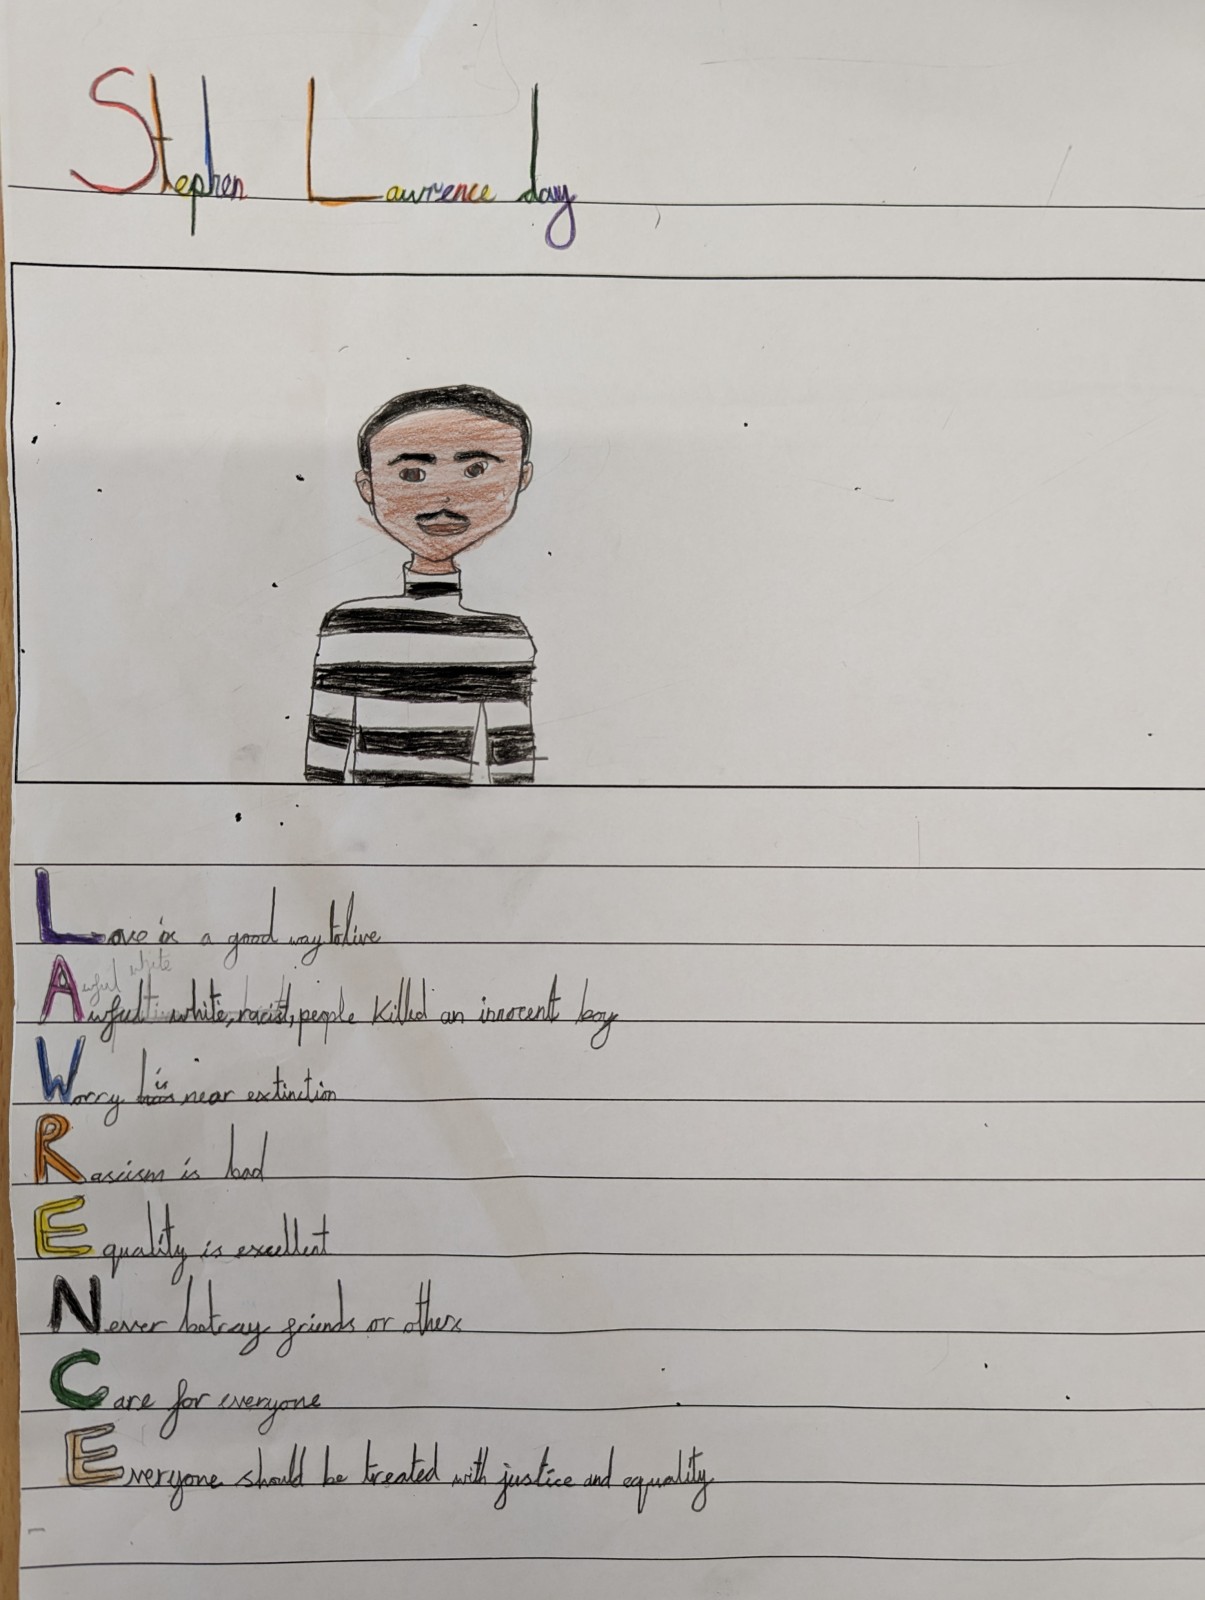 Stephen Lawrence day
Love is a good way to live
Awful white
Awful white, racist, people killed an innocent boy
Worry is near extinction
Rascism is bad
Equality is excellent
Never betray friends or others
Care for everyone
Everyone should be treated with justice and equality